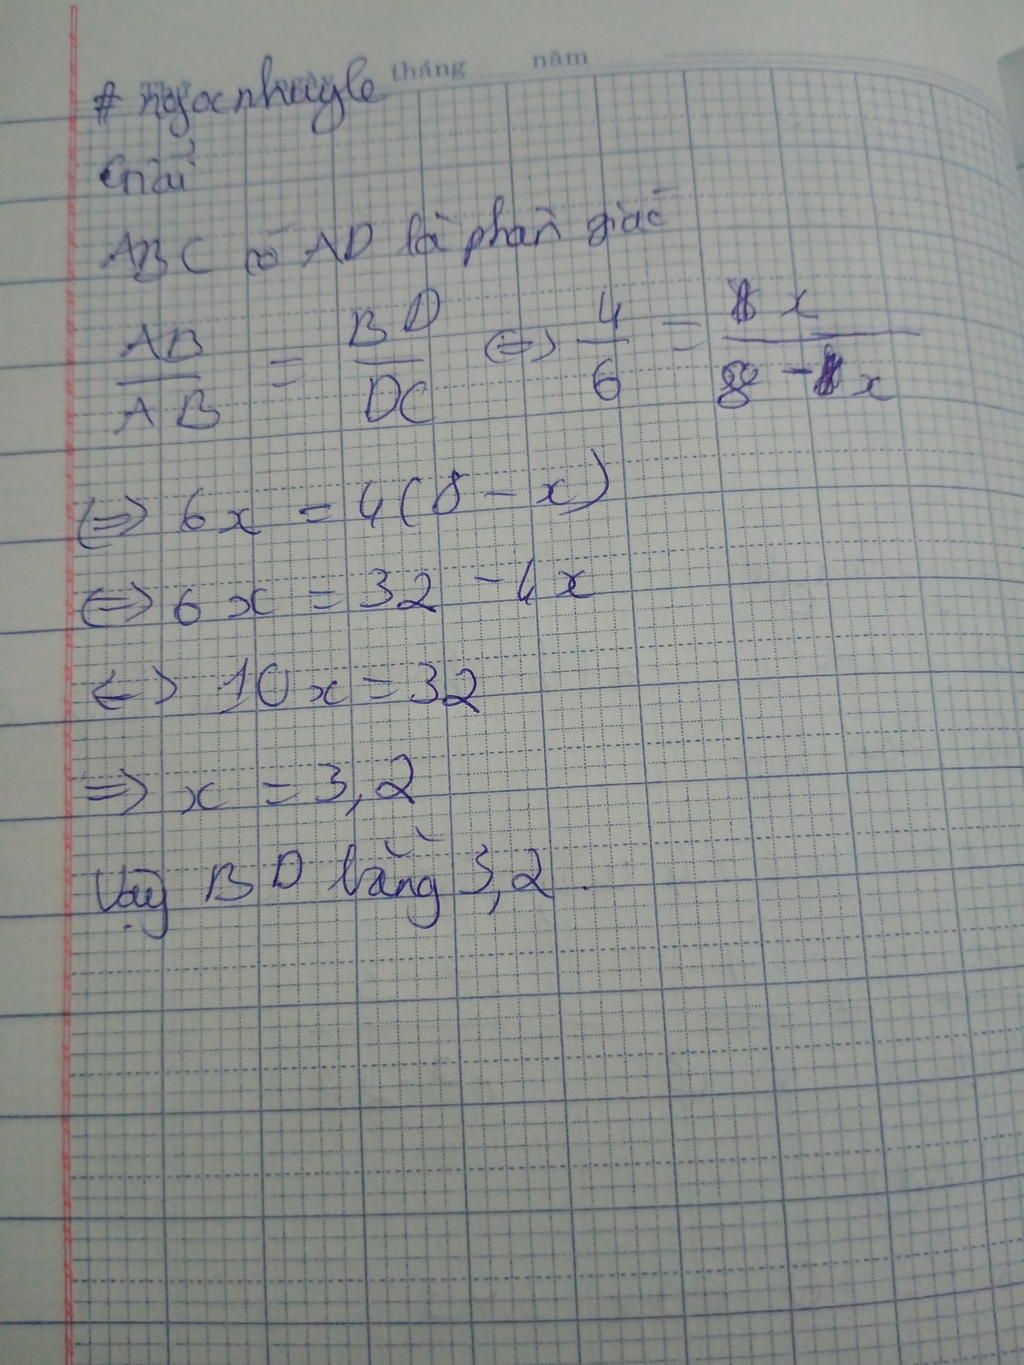 tháng năm
# ngocnhuyle
Giải
ABC có AD là phân giác
AB/AB = BD/DC <=> 4/6 = x/(8 - x)
<=> 6x = 4(8 - x)
<=> 6x = 32 - 4x
<=> 10x = 32
=> x = 3,2
Vậy BD bằng 3,2.